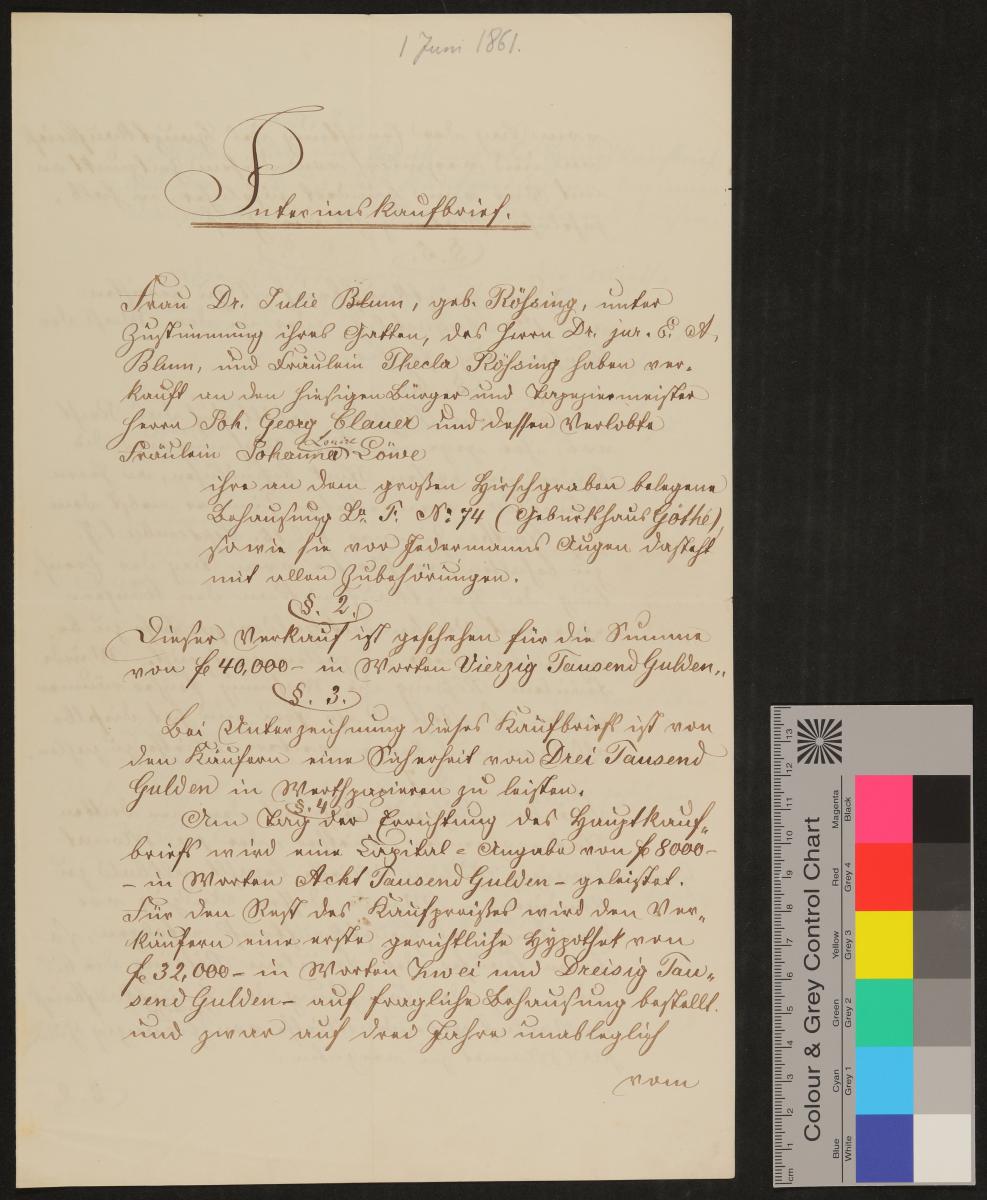 1 Juni 1861.
Interimskaufbrief.
Frau Dr. Julie Blum, geb. Rößing, unter
Zustimmung ihres Gatten, des Herrn Dr. jur. E. A.
Blum, und Fräulein Thecla Rößing haben ver-
kauft an den hiesigen Bürger und Tapeziermeister
Herrn Joh. Georg Clauer und dessen Verlobte
Louise
Fräulein Johanna Löwe
ihre an dem großen Hirschgraben belegene
Behausung La. F. No. 74 (Geburtshaus Göthé),
sowie sie vor Jedermanns Augen dasteht
mit allen Zubehörungen.
§. 2.
Dieser Verkauf ist geschehen für die Summe
von f 40,000 – in Worten Vierzig Tausend Gulden.,
§. 3.
Bei Unterzeichnung dieses Kaufbriefs ist von
den Käufern eine Sicherheit von Drei Tausend
Gulden in Werthpapieren zu leisten.
§. 4
Am Tag der Errichtung des Hauptkauf-
briefs wird eine Capital = Angabe von f 8000 –
– in Worten Acht Tausend Gulden – geleistet.
Für den Rest des Kaufpreißes wird den Ver-
käufern eine erste gerichtliche Hypothek von
f 32,000 – in Worten Zwei und Dreisig Tau-
send Gulden – auf fragliche Behausung bestellt.
und zwar auf drei Jahre unableglich
vom
Colour & Grey Control Chart
Blue Cyan Green Yellow Red Magenta
White Grey 1 Grey 2 Grey 3 Grey 4 Black
cm 1 2 3 4 5 6 7 8 9 10 11 12 13